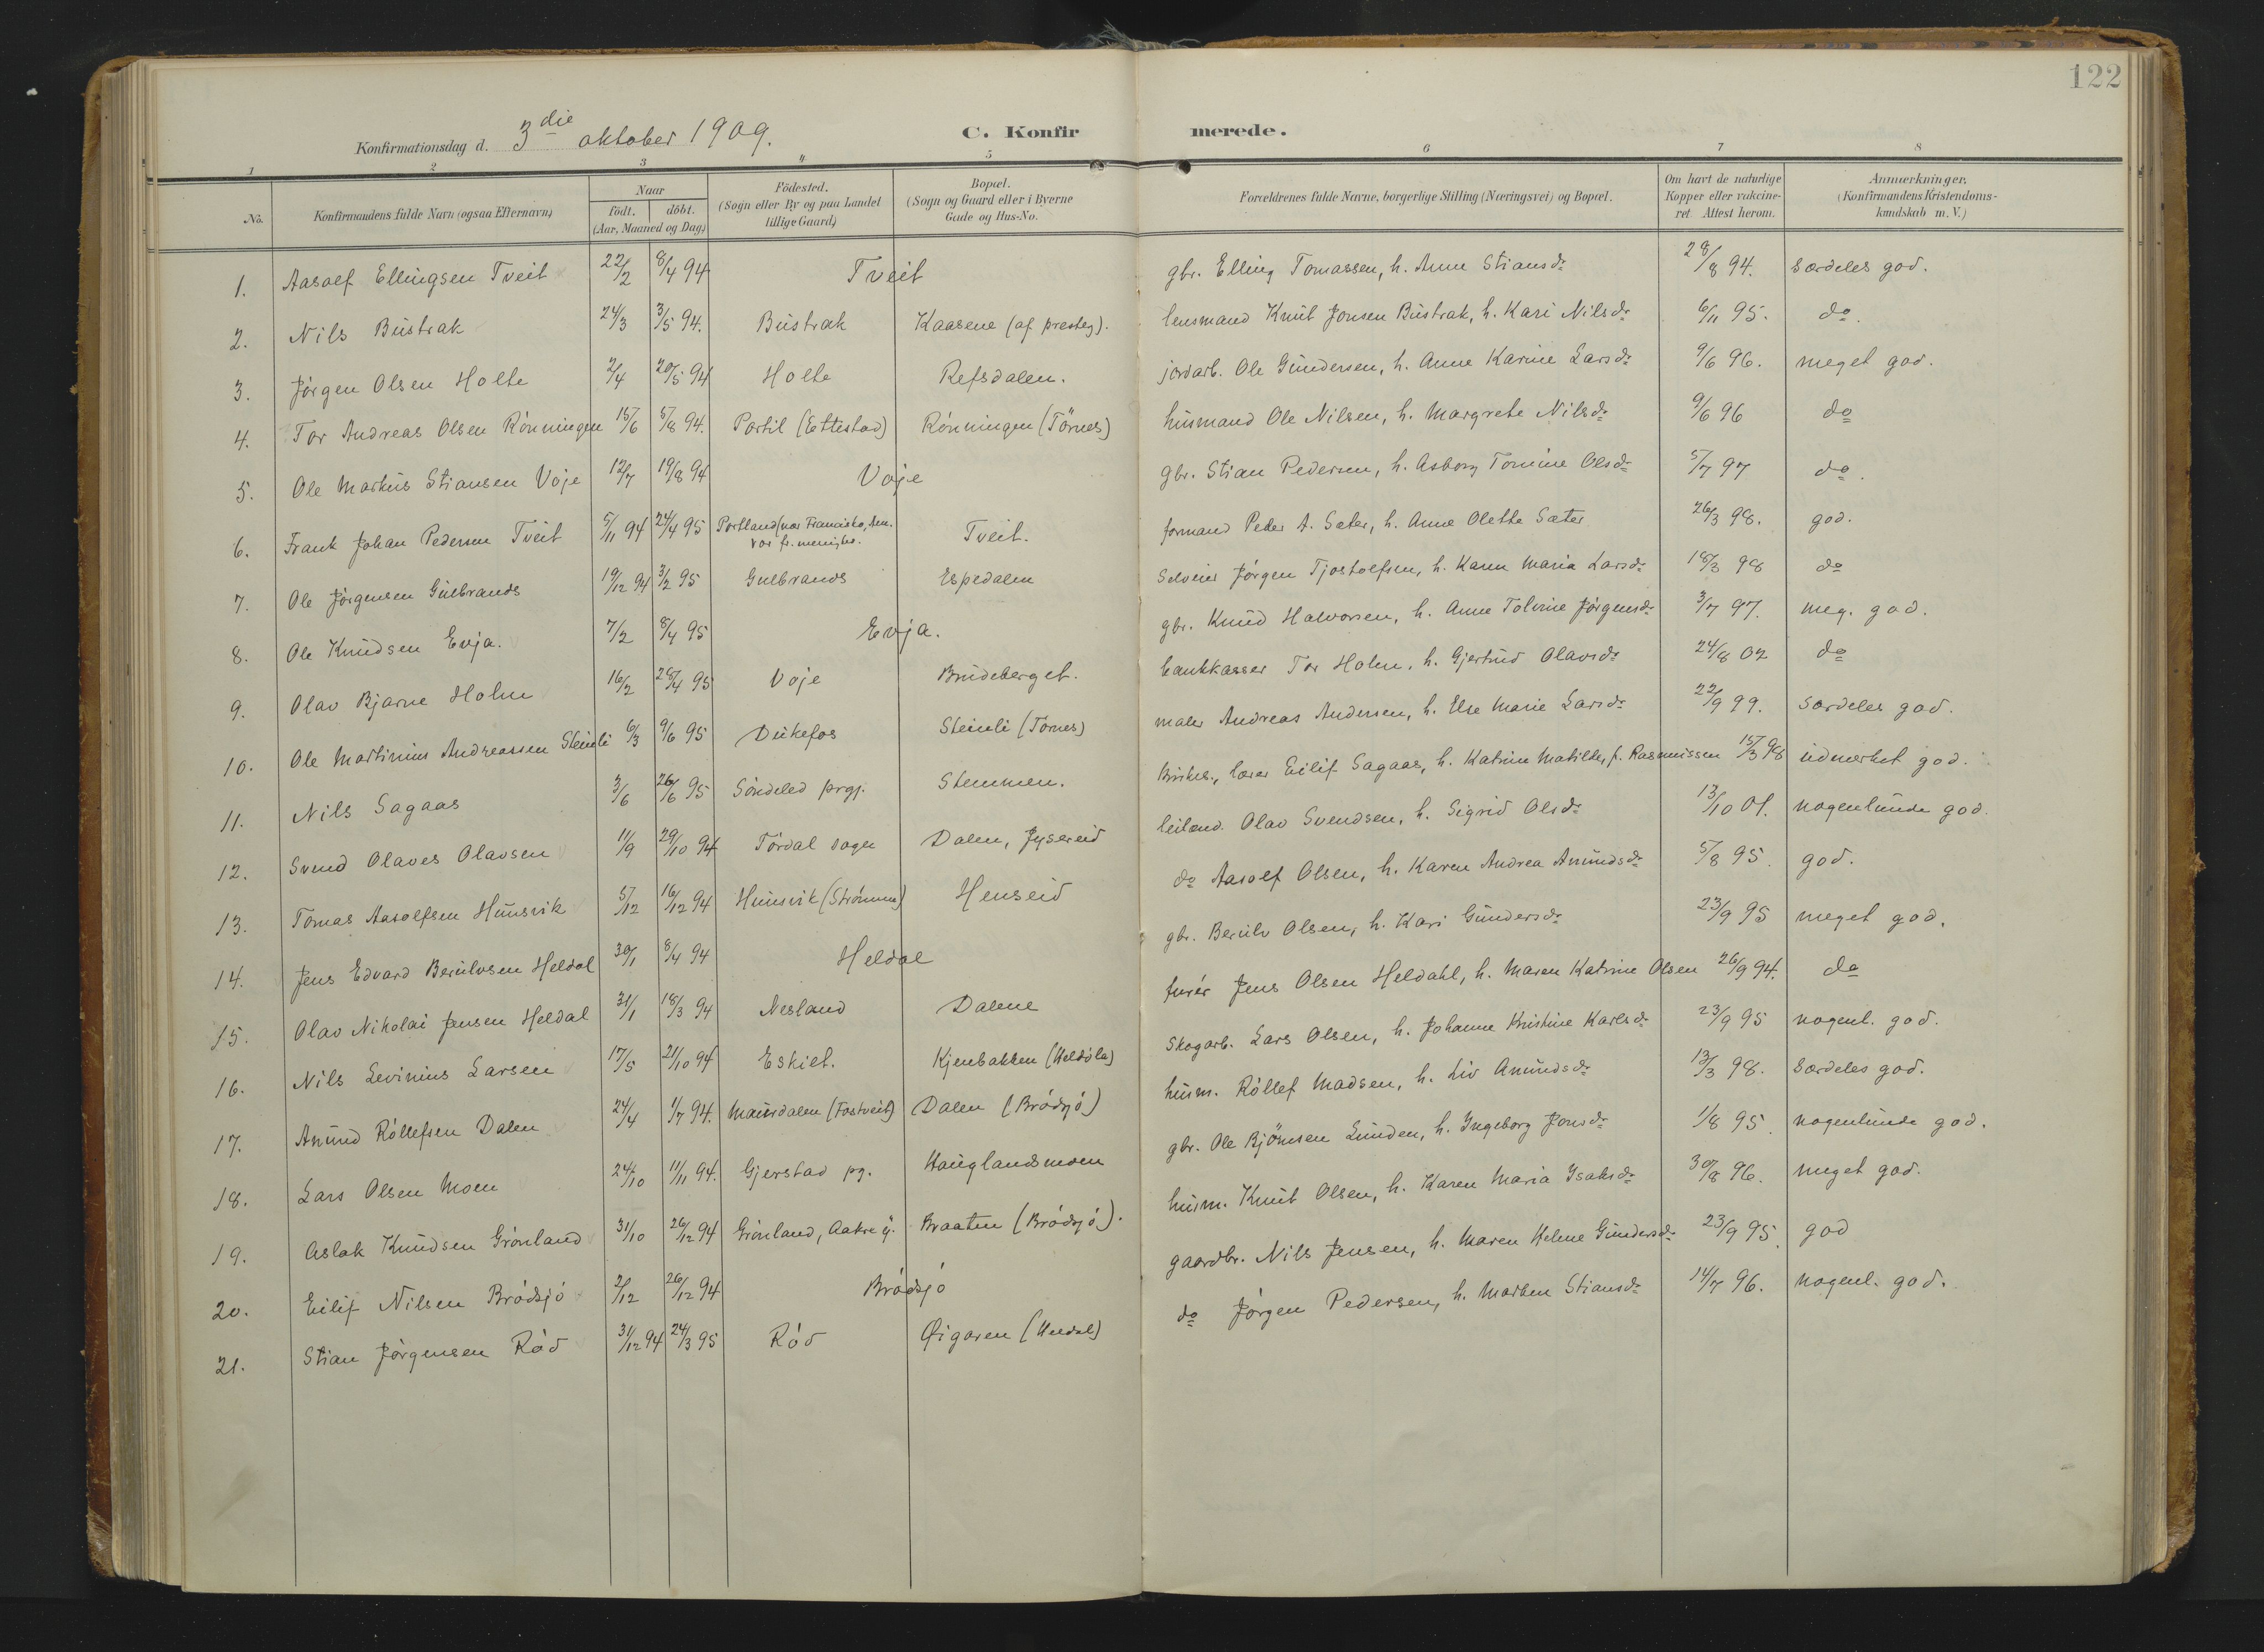 122
Konfirmationsdag d. 3die oktober 1909.
C. Konfirmerede.
1 2 3 4 5 6 7 8
No. Konfirmandens fulde Navn (ogsaa Efternavn) Naar födt. döbt. (Aar, Maaned og Dag) Födested. (Sogn eller By og paa Landet tillige Gaard) Bopæl. (Sogn og Gaard eller i Byerne Gade og Hus-No. Forældrenes fulde Navne, borgerlige Stilling (Næringsvei) og Bopæl. Om havt de naturlige Kopper eller vakcineret. Attest herom. Anmærkninger. (Konfirmandens Kristendomskundskab m. V.)
1. Aasolf Ellingsen Tveit 22/2 8/4 94 Tveit gbr. Elling Tomassen, h. Anne Stiansdr 28/8 94. særdeles god.
2. Nils Bustrak 24/3 3/5 94. Bustrak Kaasene (af presteg). lensmand Knut Jonsen Bustrak, h. Kari Nilsdr 6/11 95. do.
3. Jörgen Olsen Holte 2/4 20/5 94 Holte Refsdalen. jordarb. Ole Gundersen, h. Anne Karine Larsdr 9/6 96. meget god.
4. Tor Andreas Olsen Rönningen 15/6 5/8 94. Portil (Ettestad) Rönningen (Törnes) husmand Ole Nilsen, h. Margrete Nilsdr 9/6 96 do
5. Ole Markus Stiansen Voje 12/7 19/8 94 Voje gbr. Stian Pedersen, h. Asborg Tomine Olsdr 5/7 97 do.
6. Frank Johan Pedersen Tveit 5/11 94 24/4 95 Portland (nær Francisko, Am. vor fr. menighe. Tveit. formand Peder A. Sæter, h. Anne Olette Sæter 26/3 98. god.
7. Ole Jörgensen Gulbrands 19/12 94 3/2 95 Gulbrands Espedalen Selveier Jörgen Tjostolfsen, h. Karen Maria Larsdr 18/3 98 do
8. Ole Knudsen Evja. 7/2 8/4 95 Evja. gbr. Knud Halvorsen, h. Anne Tolvine Jörgensdr 3/7 97. meg. god.
9. Olav Bjarne Holm 16/2 28/4 95 Voje Brudeberget. bankkasser Tor Holm, h. Gjertrud Olavsdr 24/8 02 do
10. Ole Martinius Andreassen Steinli 6/3 9/6 95 Dukefos Steinli (Törnes) maler Andreas Andersen, h. Else Marie Larsdr 22/9 99. særdeles god.
11. Nils Sagaas 3/6 26/6 95 Söndeled prgj. Stemmen. Kirkes., lærer Eilif Sagaas, h. Katrine Matilde, f. Rasmussen 15/3 98 udmerket god.
12. Svend Olaves Olavsen 11/9 29/10 94 Tördal sogn Dalen, Jysereid leilænd. Olav Svendsen, h. Sigrid Olsdr 13/10 01. nogenlunde god.
13. Tomas Aasolfsen Hunsvik 5/12 16/12 94 Hunsvik (Strömme) Henseid do Aasolf Olsen, h. Karen Andrea Amundsdr 5/8 95. god.
14. Jens Edvard Berulvsen Heldal 30/1 8/4 94 Heldal gbr. Berulv Olsen, h. Kari Gundersdr 23/9 95 meget god.
15. Olav Nikolai Jensen Heldal 31/1 18/3 94 Nesland Dalene furér Jens Olsen Heldahl, h. Maren Katrine Olsen 26/9 94. do
16. Nils Levinius Larsen 17/5 21/10 94 Eskilt. Kjenbakken (Heldöla) Skogarb. Lars Olsen, h. Johanne Kristine Karlsdr 23/9 95 nogenl. god.
17. Amund Röllefsen Dalen 24/4 1/7 94. Maursdalen (Fostveit) Dalen (Brödsjö) husm. Röllef Madsen, h. Liv Amundsdr 13/3 98. Særdeles god.
18. Lars Olsen Moen 24/10 11/11 94. Gjerstad pg. Hauglandsmoen gbr. Ole Björnsen Lunden, h. Ingeborg Jonsdr 1/8 95. nogenlunde god.
19. Aslak Knudsen Grönland 31/10 26/12 94 Grönland, Aakre ÿ. Braaten (Brödsjö). husm. Knut Olsen, h. Karen Maria Isaksdr 30/8 96. meget god.
20. Eilif Nilsen Brödsjö 2/12 26/12 94 Brödsjö gaardbr. Nils Jensen, h. Maren Helene Gundersdr 23/9 95. god
21. Stian Jörgensen Röd 31/12 94 24/3 95 Röd Øigaren (Heldal) do Jörgen Pedersen, h. Marten Stiansdr 14/7 96. nogenl. god.